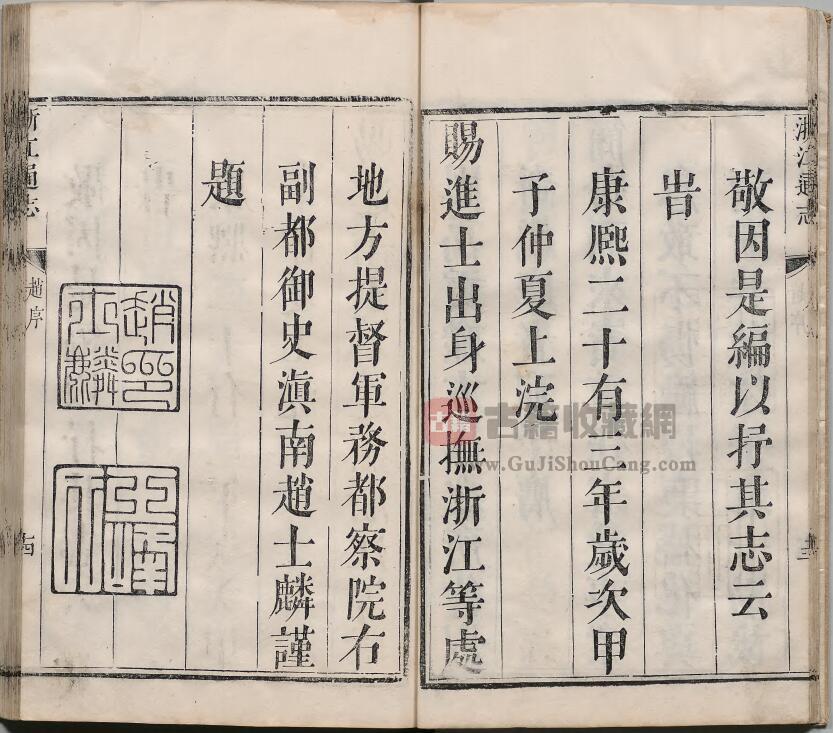 浙江通志
敬因是編以抒其志云
旹
康熙二十有三年歲次甲
子仲夏上浣
賜進士出身巡撫浙江等處
地方提督軍務都察院右
副都御史滇南趙士麟謹
題
趙印
士麟
浙江通志
趙序
十四
古籍
古籍收藏網
www.GuJiShouCang.com